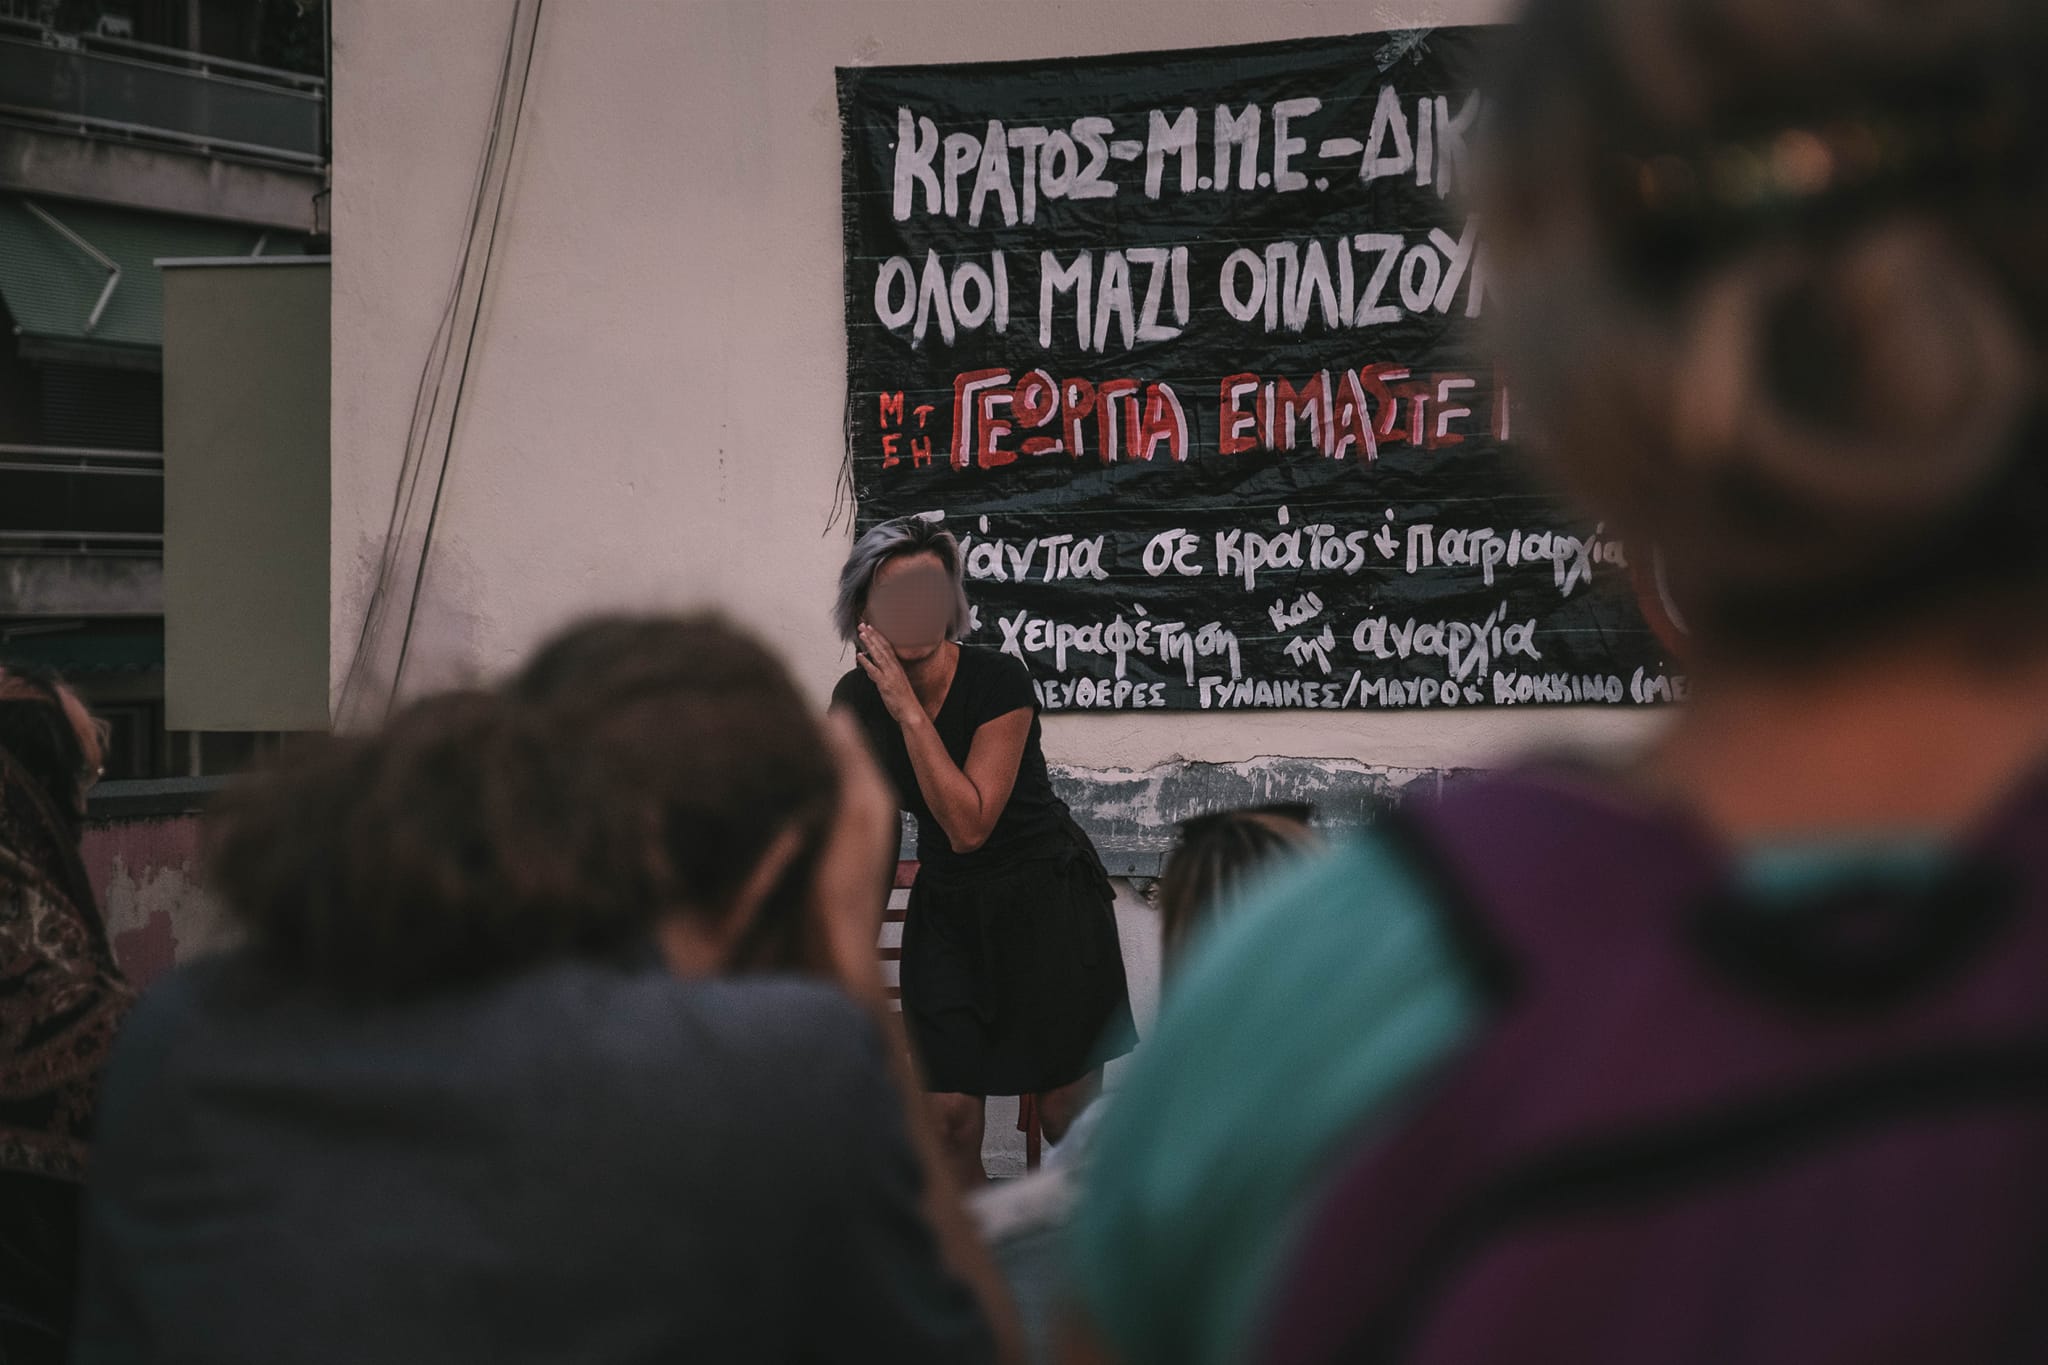 ΚΡΑΤΟΣ-Μ.Μ.Ε.-ΔΙΚ
ΟΛΟΙ ΜΑΖΙ ΟΠΛΙΖΟΥΝ
ΜΤ ΕΗ ΓΕΩΡΓΙΑ ΕΙΜΑΣΤΕ
σε κράτος + πατριαρχία
χειραφέτηση και την αναρχία
ΓΥΝΑΙΚΕΣ/ΜΑΥΡΟ & ΚΟΚΚΙΝΟ (ΜΕ